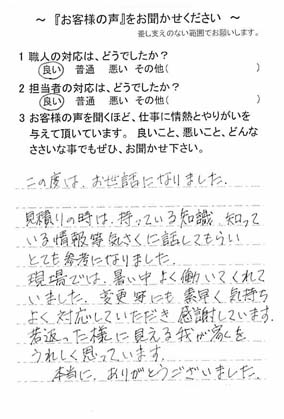 ～ 『お客様の声』をお聞かせください ～
差し支えのない範囲でお願いします。
1 職人の対応は、どうでしたか?
良い 普通 悪い その他( )
2 担当者の対応は、どうでしたか?
良い 普通 悪い その他( )
3 お客様の声を聞くほど、仕事に情熱とやりがいを
与えて頂いています。 良いこと、悪いこと、どんな
ささいな事でもぜひ、お聞かせ下さい。
この度は、お世話になりました。
見積りの時は、持っている知識、知って
いる情報等気さくに話してもらい
とても参考になりました。
現場では、暑い中よく働いてくれて
いました。変更等にも素早く気持ち
よく対応していただき感謝しています。
若返った様に見える我が家を
うれしく思っています。
本当に、ありがとうございました。